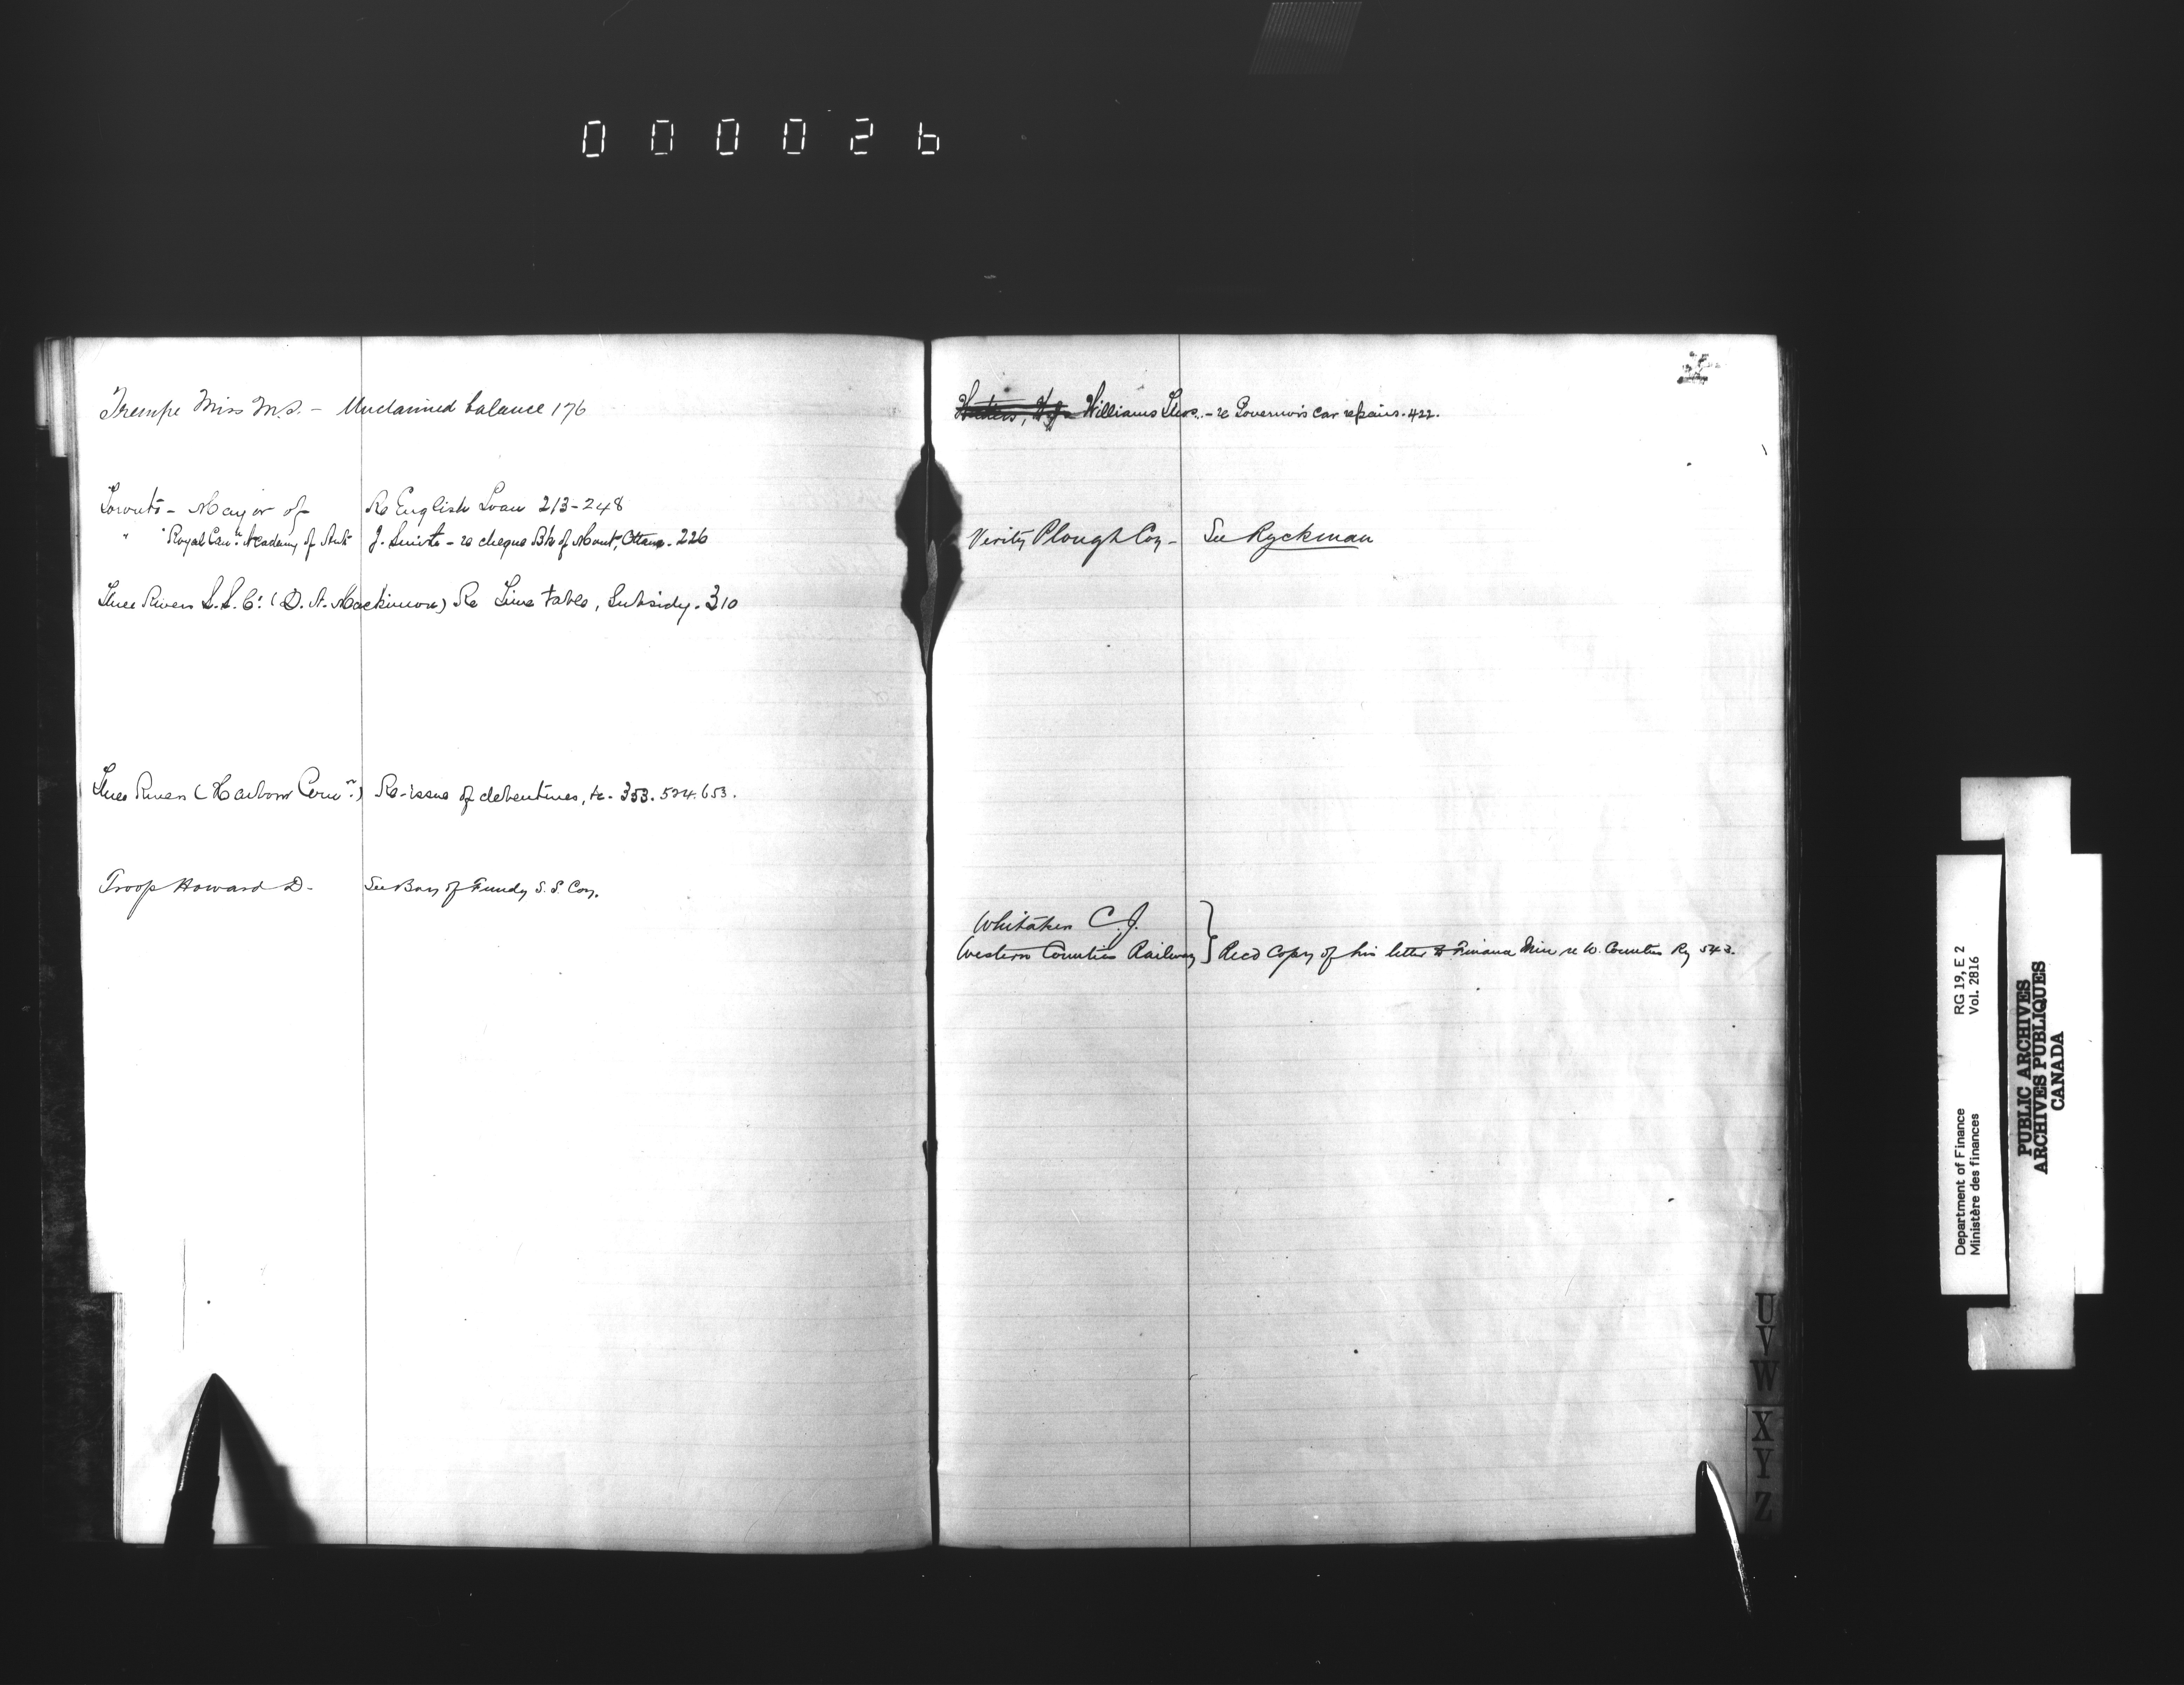 000026
Trempe Miss M.S. - Unclaimed balance 176
Toronto - Mayor of Re English Loan 213-248
" Royal Can. Academy of Arts J. Smith - re cheque Bk of Mont, Ottawa - 226
Three Rivers S.S. Co. (D. A. Mackinnon) Re Time table, Subsidy. 310
Three Rivers (Harbour Comrs.) Re-issue of debentures, &c. 353. 524. 653.
Troop Howard D. - See Bay of Fundy S.S. Coy.
Williams Thos. - re Governor's car repairs. 422.
Verity Plough Coy - See Ryckman
Whitaker C.J.
Western Counties Railway } Recd Copy of his letter to Finance Min re W. Counties Ry 543.
U
V
W
X
Y
Z
Department of Finance RG 19, E 2
Ministère des finances Vol. 2816
PUBLIC ARCHIVES
ARCHIVES PUBLIQUES
CANADA